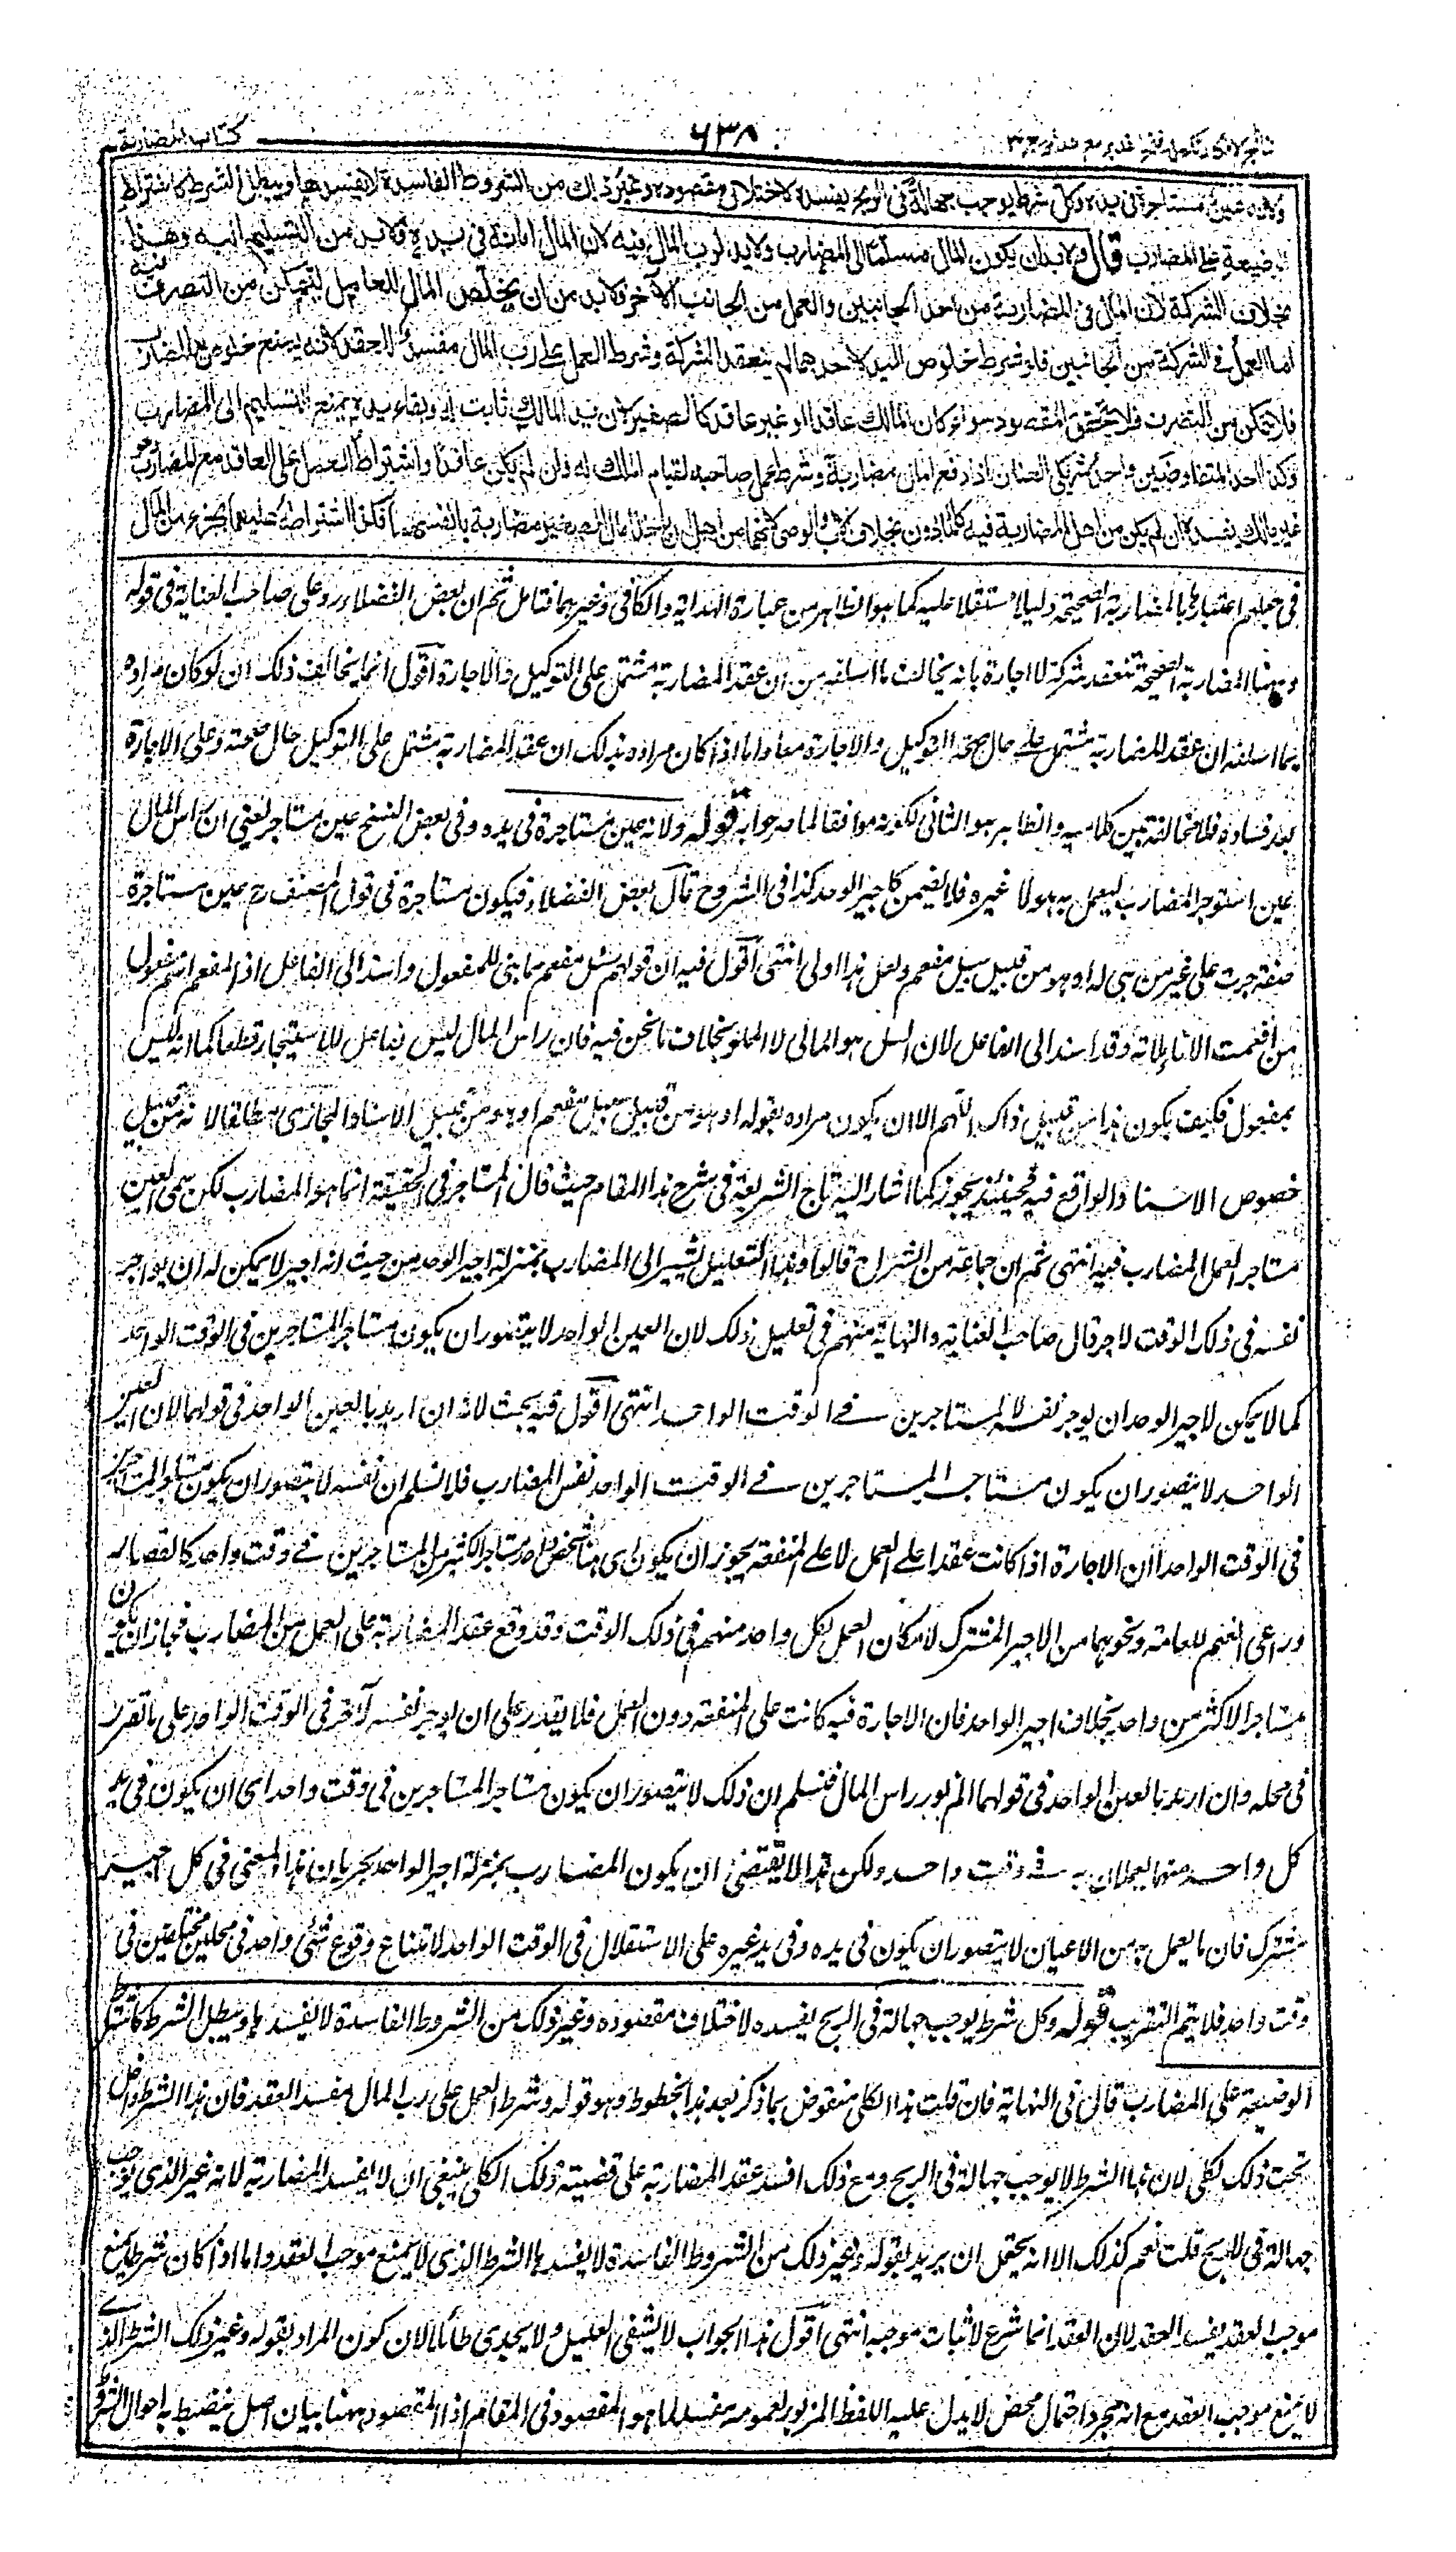 كتاب المضاربة ٦٣٨ نتائج الافكار تكملة فتح القدير مع هداية ج ٣
ولانه عين مستاجرة فى يده وكل شرط يوجب جهالة فى الربح يفسده لاختلال مقصوده وغير ذلك من الشروط الفاسدة لا يفسدها ويبطل الشرط كاشتراط
الوضيعة على المضارب قال ولا بد ان يكون المال مسلما الى المضارب ولا يد لرب المال فيه لان المال امانة فى يده فلا بد من التسليم اليه وهذا
بخلاف الشركة لان المال فى المضاربة من احد الجانبين والعمل من الجانب الآخر فلا بد من ان يخلص المال للعامل ليتمكن من التصرف فيه
اما العمل فى الشركة من الجانبين فلو شرط خلوص اليد لاحدهما لم ينعقد الشركة وشرط العمل على رب المال مفسد للعقد لانه يمنع خلوص يد المضارب
فلا يتمكن من التصرف فلا يتحقق المقصود سواء كان المالك عاقدا او غير عاقد كالصغير لان يد المالك ثابت له وبقاء يده يمنع التسليم الى المضارب
وكذا احد المتفاوضين واحد شريكى العنان اذا دفع المال مضاربة وشرط عمل صاحبه لقيام الملك له وان لم يكن عاقدا واشتراط العمل على العاقد مع المضارب وهو
غير مالك يفسده ان لم يكن من اهل المضاربة فيه كالماذون بخلاف الاب والوصى لانهما من اهل ان ياخذا مال الصغير مضاربة بانفسهما فكذا اشتراطه عليهما بجزء من المال
فى جعلهم اعتبارها بالمضاربة الصحيحة دليلا مستقلا عليه كما هو الظاهر من عبارة الهداية والكافى وغيرهما فتامل ثم ان بعض الفضلاء رد على صاحب العناية فى قوله
وههنا المضاربة الصحيحة تنعقد شركة لا اجارة بانه يخالف ما اسلفه من ان عقد المضاربة مشتمل على التوكيل والاجارة اقول انما يخالف ذلك ان لو كان مراده
بما اسلفه ان عقد المضاربة مشتمل على حال صحته التوكيل والاجارة معا واما اذا كان مراده بذلك ان عقد المضاربة مشتمل على التوكيل حال صحته وعلى الاجارة
بعد فساده فلا مخالفة بين كلاميه والظاهر هو الثانى لكونه موافقا لما به جوابه قوله ولانه عين مستاجرة فى يده وفى بعض النسخ عين مستاجر يعنى ان راس المال
عين استوجر المضارب ليعمل به هو لا غيره فلا يضمن كاجير الوحد كذا فى الشروح قال بعض الفضلاء فيكون مستاجرة فى قول المصنف رح عين مستاجرة
صفة جرت على غير من هى له او هو من قبيل سيل مفعم ولعل هذا اولى انتهى اقول فيه ان قولهم سيل مفعم مما بنى للمفعول واسند الى الفاعل اذ المفعم اسم مفعول
من افعمت الاناء ملأته وقد اسند الى الفاعل لان السيل هو المالى لا المملو بخلاف ما نحن فيه فان راس المال ليس بفاعل للاستيجار قطعا كما انه ليس
بمفعول فكيف يكون هذا من قبيل ذاك اللهم الا ان يكون مراده بقوله او هو من قبيل سيل مفعم او هو من قبيل الاسناد المجازى مطلقا لا انه من قبيل
خصوص الاسناد الواقع فيه فحينئذ يجوز كما اشار اليه تاج الشريعة فى شرح هذا المقام حيث قال المستاجر فى الحقيقة انما هو المضارب لكن سمى العين
مستاجر العمل المضارب فيه انتهى ثم ان جماعة من الشراح قالوا وهذا التعليل يشير الى المضارب بمنزلة اجير الوحد من حيث انه اجير لا يمكن له ان يواجر
نفسه فى ذلك الوقت لآخر قال صاحب العناية والنهاية منهم فى تعليل ذلك لان العين الواحد لا يتصور ان يكون مستاجر المستاجرين فى الوقت الواحد
كما لا يمكن لاجير الوحد ان يوجر نفسه لمستاجرين فى الوقت الواحد انتهى اقول فيه بحث لانه ان اريد بالعين الواحد فى قولهما لان العين
الواحد لا يتصور ان يكون مستاجرا لمستاجرين فى الوقت الواحد نفس المضارب فلا نسلم ان نفسه لا يتصور ان يكون مستاجرا لمستاجرين
فى الوقت الواحد اذ الاجارة اذا كانت عقدا على العمل لا على المنفعة يجوز ان يكون شخص واحد مستاجر الكثير من المستاجرين فى وقت واحد كالقصار
وراعى الغنم للعامة ونحوهما من الاجير المشترك لامكان العمل لكل واحد منهم فى ذلك الوقت وقد وقع عقد المضاربة على العمل من المضارب فجاز ان يكون
مستاجرا لاكثر من واحد بخلاف اجير الواحد فان الاجارة فيه كانت على المنفعة دون العمل فلا يقدر على ان يوجر نفسه لآخر فى الوقت الواحد على ما تقرر
فى محله وان اريد بالعين الواحد فى قولهما المزبور راس المال فنسلم ان ذلك لا يتصور ان يكون مستاجرا لمستاجرين فى وقت واحد اى ان يكون فى يد
كل واحد منهما يعملان به فى وقت واحد ولكن هذا لا يقتضى ان يكون المضارب بمنزلة اجير الواحد بجريان هذا المعنى فى كل اجير
مشترك فان ما يعمل به من الاعيان لا يتصور ان يكون فى يده وفى يد غيره على الاستقلال فى الوقت الواحد لامتناع وقوع شئى واحد فى محلين مختلفين فى
وقت واحد فلا يتم التقريب قوله وكل شرط يوجب جهالة فى الربح يفسده لاختلاف مقصوده وغير ذلك من الشروط الفاسدة لا يفسدها ويبطل الشرط كاشتراط
الوضيعة على المضارب قال فى النهاية فان قلت هذا الكلى منقوض بما ذكر بعد هذا بخطوط وهو قوله وشرط العمل على رب المال مفسد العقد فان هذا الشرط داخل
تحت ذلك الكلى لان هذا الشرط لا يوجب جهالة فى الربح ومع ذلك افسد عقد المضاربة على قضية ذلك الكلى ينبغى ان لا يفسد المضاربة لانه غير الذى يوجب
جهالة فى الربح قلت نعم كذلك الا انه يحتمل ان يريد بقوله وغير ذلك من الشروط الفاسدة لا يفسدها الشرط الذى لا يمنع موجب العقد واما اذا كان شرطا يمنع
موجب العقد يفسد العقد لان العقد انما شرع لاثبات موجبه انتهى اقول هذا الجواب لا يشفى العليل ولا يجدى طائلا لان كون المراد بقوله وغير ذلك الشرط الذى
لا يمنع موجب العقد مع انه مجرد احتمال محض لا يدل عليه اللفظ المزبور لعمومه مفسد لما هو المقصود فى المقام اذ المقصود ههنا بيان اصل ينضبط به احوال الشروط